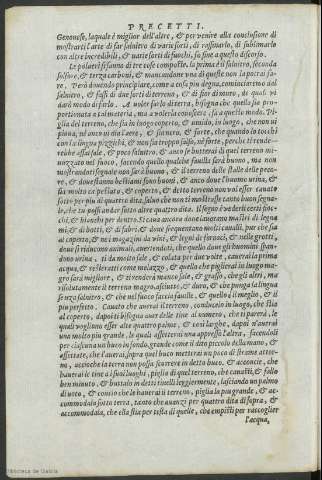 PRECETTI.
Genouese, laquale è miglior dell'altre, & per venire alla conclusione di
mostrarui l'arte di far salnitro di varie sorti, di raffinarlo, di sublimarlo
con altre incredibili, & varie sorti di fuochi, fo fine a questo discorso.
Le polueri si fanno di tre cose composte, la prima è il salnitro, seconda
solfore, & terza carboni, & mancandone vna di queste non la potrai fa-
re. Però douendo principiare, come a cosa piu degna, cominciaremo dal
salnitro, & fassi di due sorti di terreno, & di fior di muro, di qual vi
darò modo di farlo. A voler farlo di terra, bisogna che quella sia pro-
portionata a tal materia, ma a volerla conoscere, sia a questo modo. Pi-
glia del terreno, che sia in luogo coperto, & umido, in luogo, che non vi
pioua, nè anco vi dia l'aere, & sia nero, & forte, che quando lo tocchi
con la lingua pizzichi, & non sia troppo salso,
rebbe assai sale, & poco salnitro, & anco se buttarai di quel terreno mi-
nuzzato nel fuoco, facendo quello qualche fauilla sarà buono, ma non
mostrando segnale non sarà buono, & il terreno delle stalle delle peco-
re, & doue stanno bestiami sono buoni, & anco doue l'huomo urina, &
sia molto calpestato, & coperto, & detto terreno non vol esser cauato
sotto per piu di quattro dita, saluo che non ti mostrasse tanto buon segna-
le, che tu possi andar sotto altre quattro dita. Il segno è vederli certi fioc-
chi, & bianchi per dentro. Si caua ancora doue lauorano mastri di legna
mi, & di botti, & di fabri, & doue frequentano molti caualli, pur che sia
al coperto, & nei magazini da vino, & legni di fornaci, & nelle grotti,
doue si riducono animali, auertendo, che quello doue gli huomini span-
dono urina, ti da molto sale, & colata per due volte, cauerai la prima
acqua, & resterà come melazzo, & quello che piglierai in luogo ma-
gro sarà migliore, & ti renderà manco sale, & grasso, che gli altri, ma
risolutamente il terreno magro, asciuto, & duro, & che ponga la lingua
se sarà salnitro, & che nel fuoco faccia fauille, & quello è il meglio, & il
piu perfetto. Cauato che auerai il terreno, conducilo in luogo, che stia
al coperto, dapoi ti bisogna auer delle tine al numero, che ti parerà, le
quali vogliono esser alte quattro palmi, & così larghe, dapoi n'auerai
una molto piu grande, le quali assetterai una appresso l'altra, facendoli
per ciascuna un buco in fondo, grande come il dito piccolo della mano, &
assettate, che l'auerai, sopra quel buco metterai un poco di strame attor-
no, accioche la terra non possa scorrere in detto buco. & acconcie, che
hauerai le tine al suoi luoghi, piglia di quel terreno, che cauasti, & follo
ben minuto, & buttalo in detti tinelli leggiermente, lasciando un palmo
di uoto, & concio che le hauerai in terreno, piglia la piu grande, & ac-
commodala sotto terra, tanto che auanzi per quattro dita di sopra, &
accommodala, che ella stia per testa di quelle, che empisti per raccoglier
l'acqua,
Biblioteca de Galicia